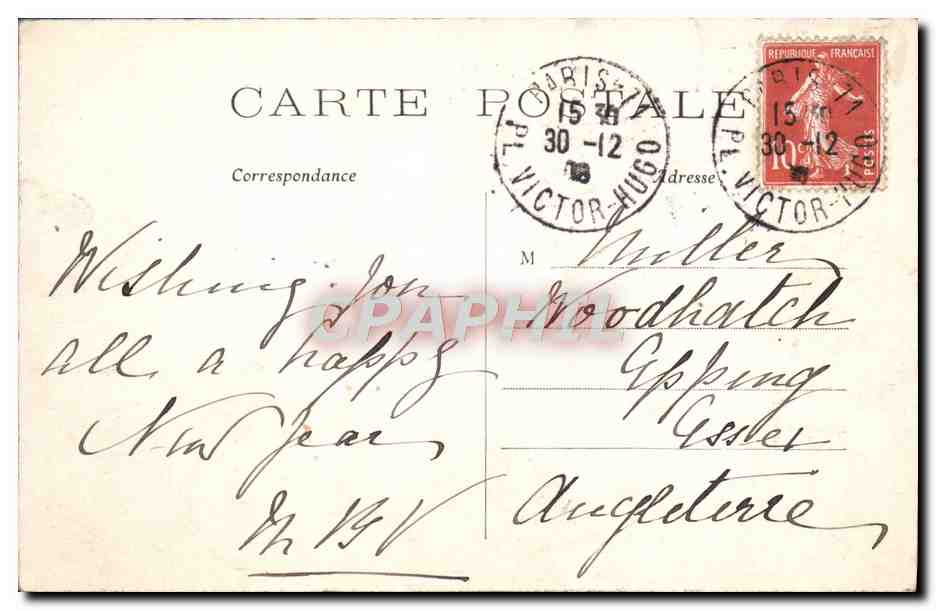 CARTE POSTALE
Correspondance
Adresse
PARIS-71
15 30
30 -12
PL. VICTOR-HUGO
REPUBLIQUE FRANÇAISE
10c
POSTES
PARIS 71
15 30
30 -12
PL. VICTOR-HUGO
Wishing you
all a happy
New Year
M B V
M Miller
Woodhatch
Epping
Essex
Angleterre
CPAPHIL